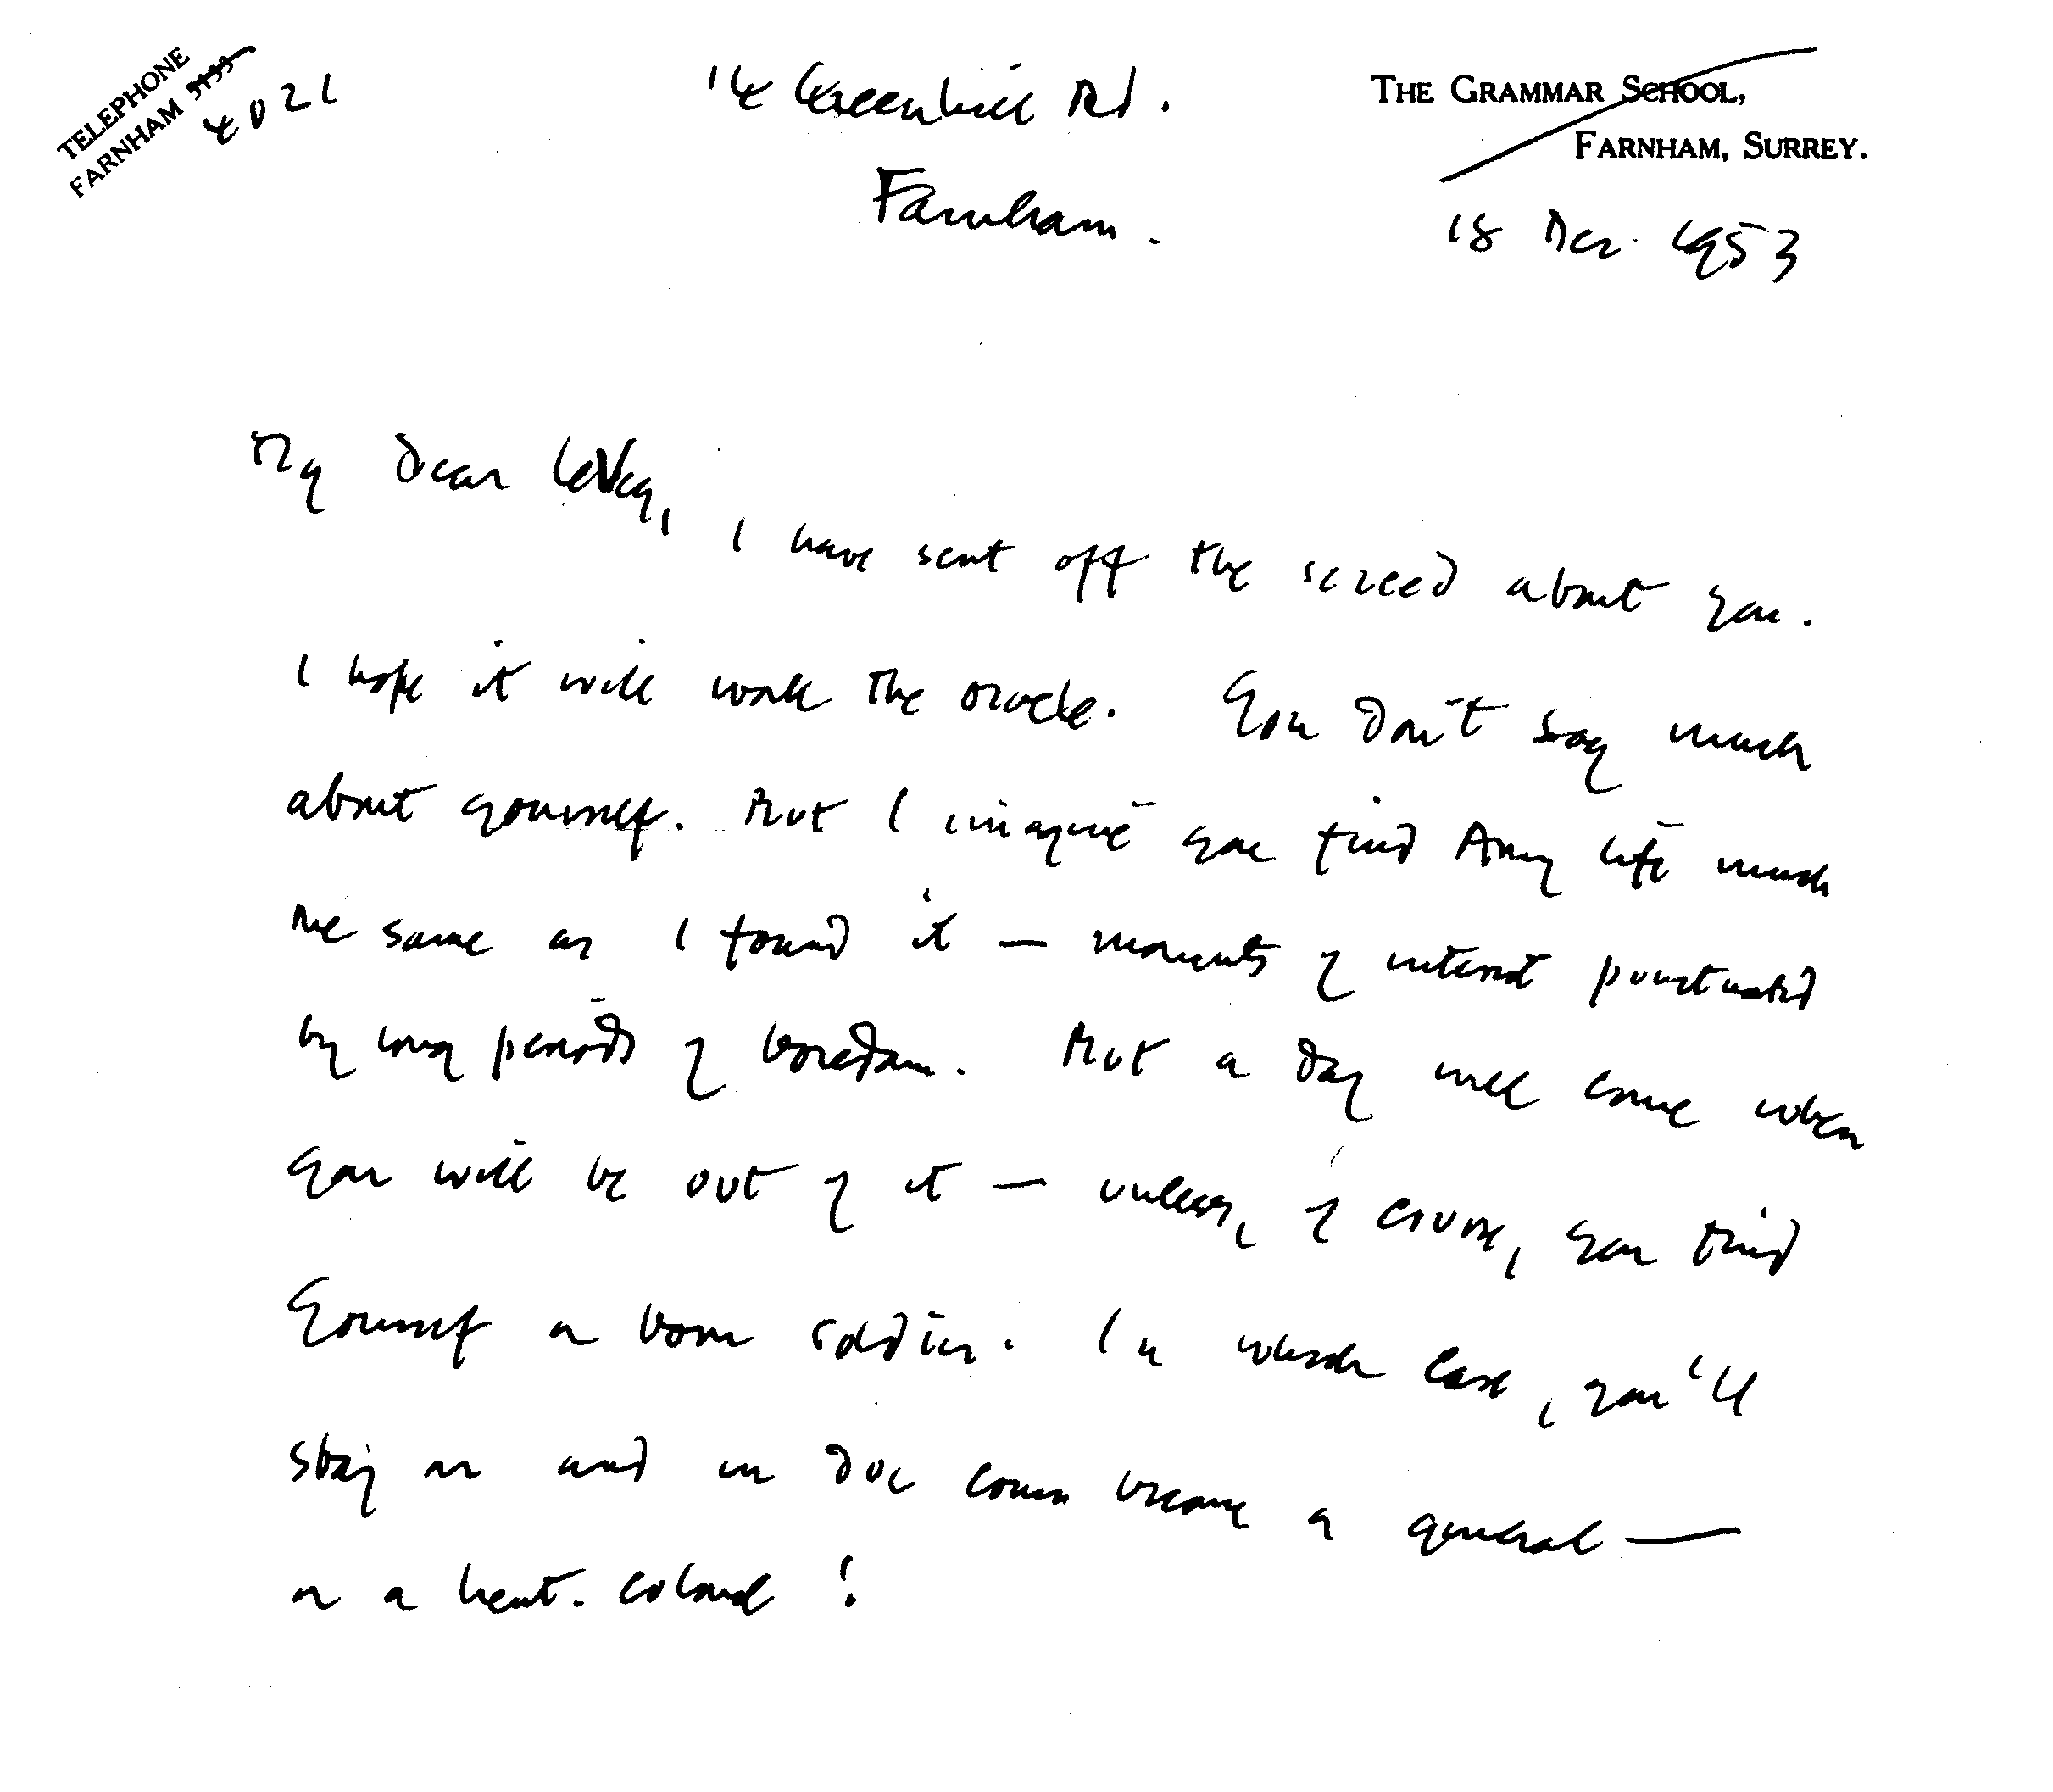 TELEPHONE
FARNHAM 5133
4021
14 Greenhill Rd.
Farnham.
THE GRAMMAR SCHOOL,
FARNHAM, SURREY.
18 Dec. 1953
My dear Levey,
I have sent off the screed about you.
I hope it will work the oracle. You don't say much
about yourself. But I imagine you find Army life much
the same as I found it — moments of interest punctuated
by long periods of boredom. But a day will come when
you will be out of it — unless, of course, you find
yourself a born soldier. In which case, you'll
stay on and in due course become a general —
or a lieut. colonel!